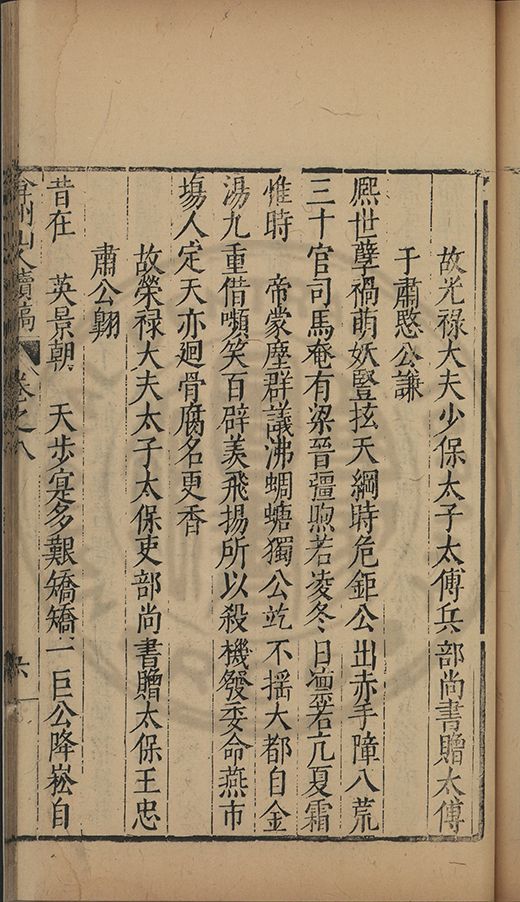 故光禄大夫少保太子太傅兵部尚書贈太傅
于肅愍公謙
熈世孽禍萌妖豎扷天綱時危鉅公出赤手障八荒
三十官司馬奄有梁晉疆煦若凌冬日凜若亢夏霜
惟時 帝蒙塵群議沸蜩螗獨公屹不揺大都自金
湯九重借嚬笑百辟羡飛揚所以殺機發委命燕市
塲人定天亦迴骨腐名更香
故榮禄大夫太子太保吏部尚書贈太保王忠
肅公翺
昔在 英景朝 天步寔多艱矯矯一巨公降崧自
弇州山人續稿 卷之八 六